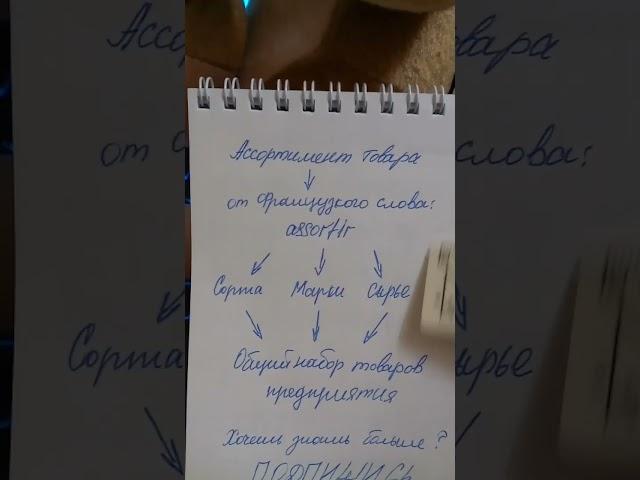 Ассортимент товара
от Французкого слова:
assortir
Сорта Марки Сырье
Общий набор товаров
предприятия
Хочешь знать больше?
ПОДПИШИСЬ